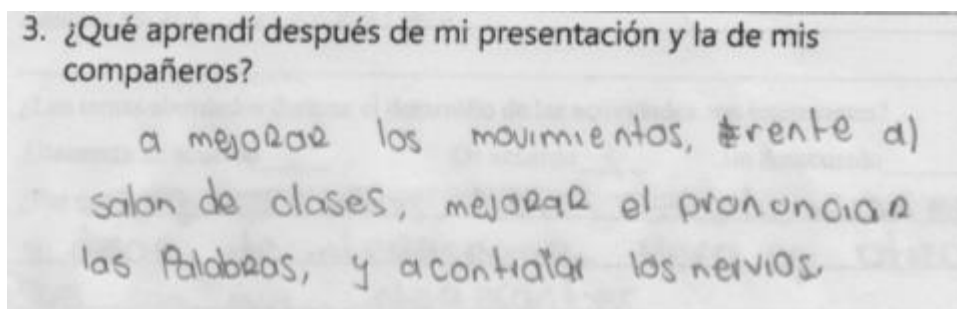 3. ¿Qué aprendí después de mi presentación y la de mis
compañeros?
a mejorar los movimientos, frente al
salon de clases, mejorar el pronunciar
las Palabras, y a contralar los nervios.